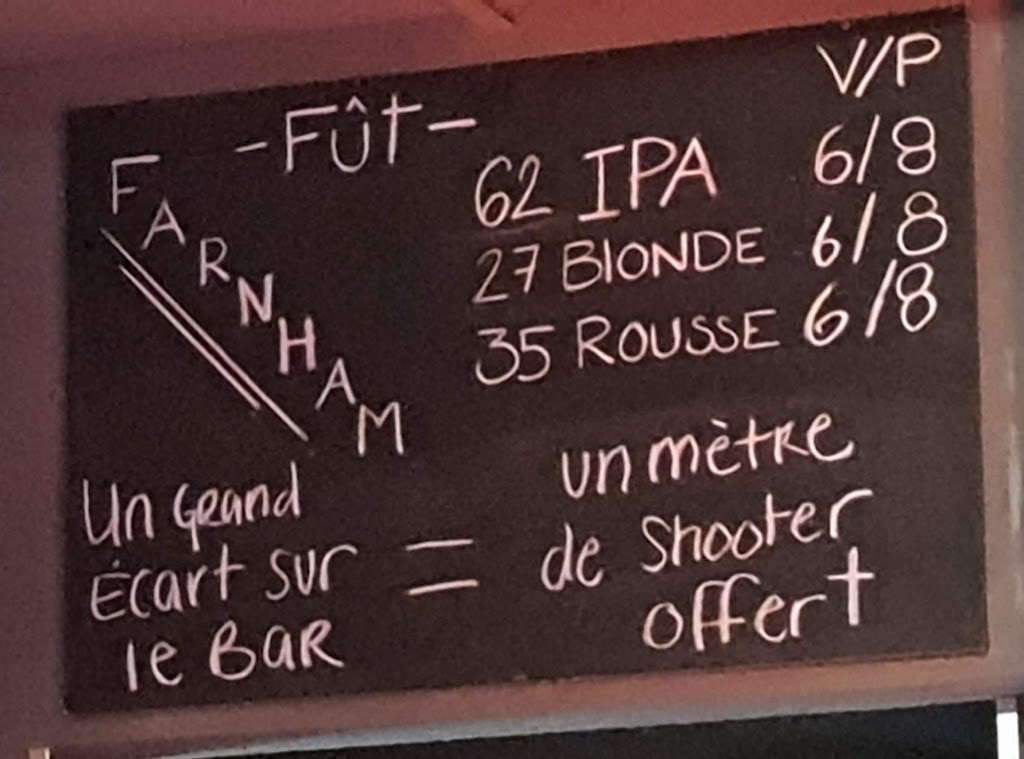 -Fût-
V/P
FARNHAM
62 IPA 6/8
27 BlONDE 6/8
35 ROUSSE 6/8
Un GRand
Écart sur
le BaR
=
un mètRe
de shooter
offert